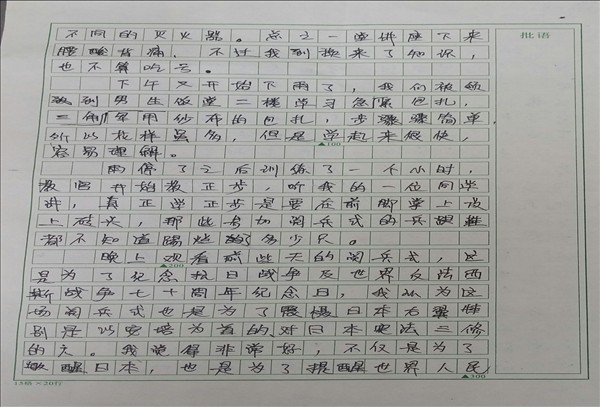 批语
不同的灭火器。总之一堂讲座下来
腰酸背痛。不过我到换来了知识，
也不算吃亏。
下午又开始下雨了，我们被领
到男生饭堂二楼学习急紧包扎，
三角军用纱布的包扎，步骤简单，
所以花样虽多，但是学起来很快，
容易理解。
雨停了之后训练了一个小时，
教官开始教正步，听我的一位同学
讲，真正学正步是要在前脚掌上放
上砖头，那些参加阅兵式的兵
都不知道踢烂了多少只。
晚上观看前些天的阅兵式，这
是为了纪念抗日战争及世界反法西
斯战争七十周年纪念日，我认为这
场阅兵式也是为了震慑日本右翼特
别是以安倍为首的对日本宪法三修
的人。我觉得非常好，不仅是为了
敲醒日本，也是为了提醒世界人民
▲100
▲200
▲300
15格×20行